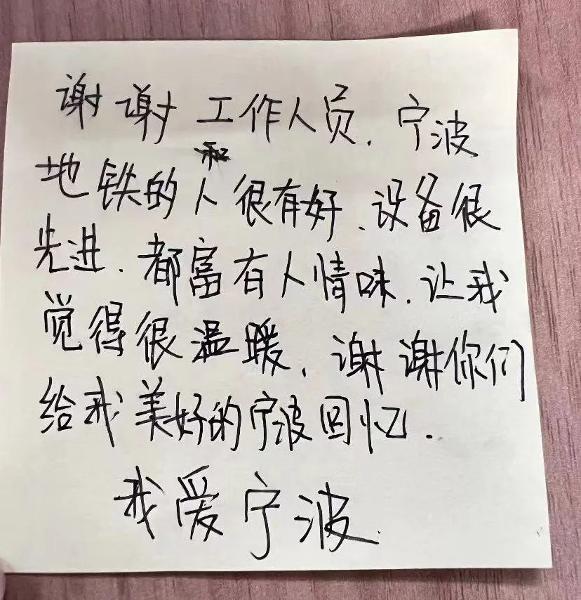 谢谢工作人员，宁波
地铁的人很有好、设备很
先进、都富有人情味，让我
觉得很温暖，谢谢你们
给我美好的宁波回忆．
我爱宁波